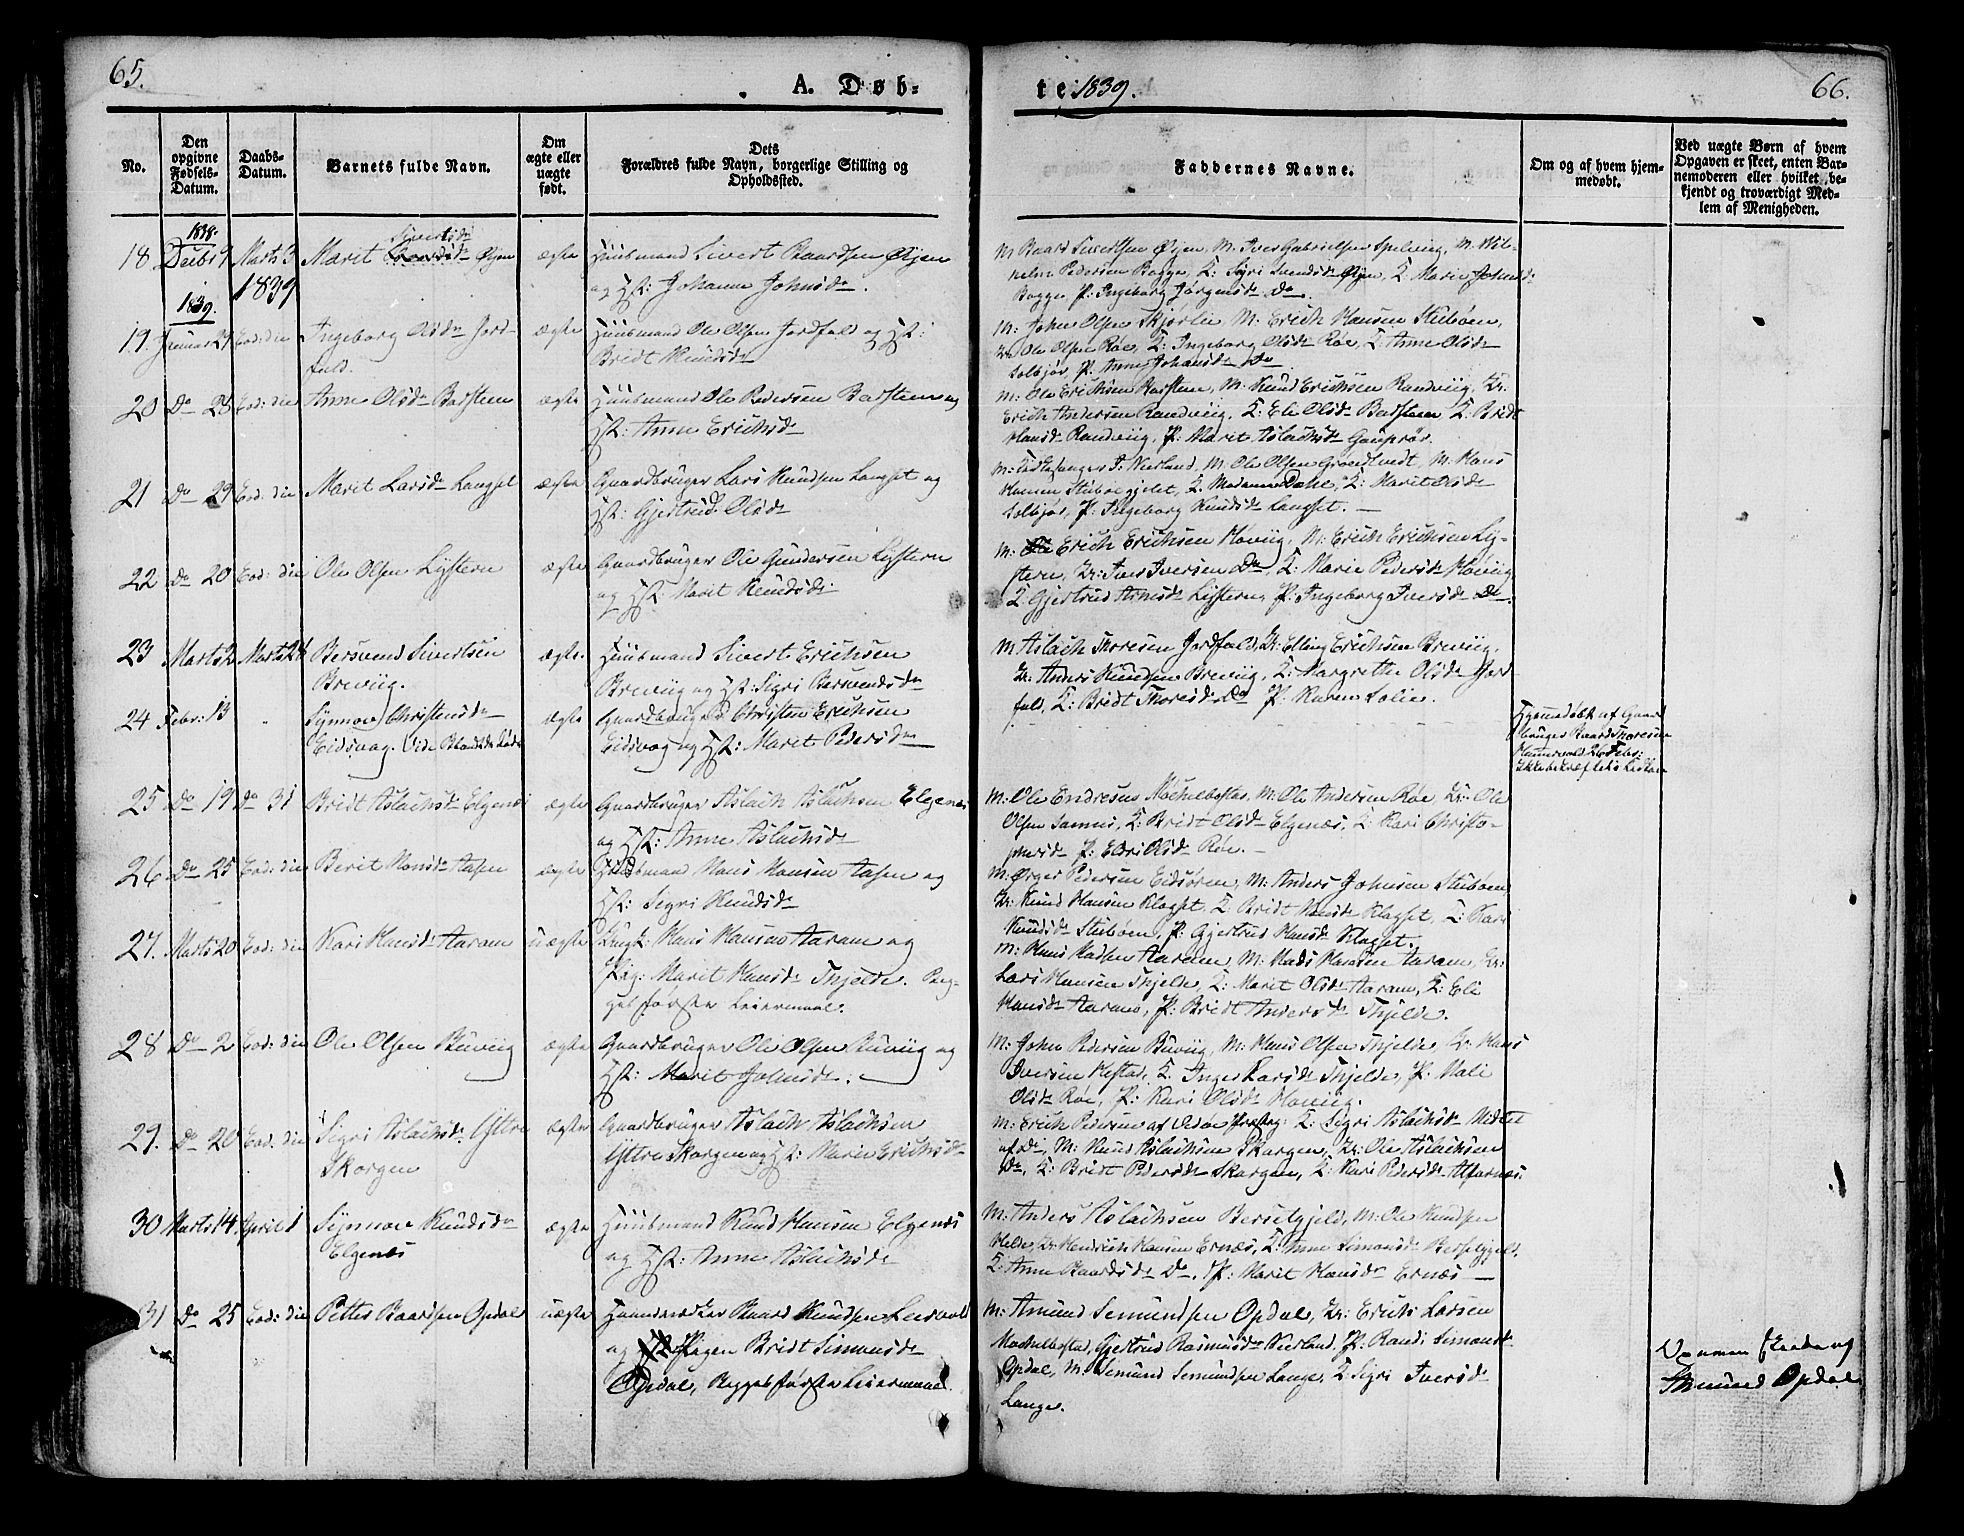 65.
A. Døb-
te 1839.
66.
No.
Den opgivne Fødsels-Datum.
Daabs-Datum.
Barnets fulde Navn.
Om ægte eller uægte født.
Dets
Forældres fulde Navn, borgerlige Stilling og
Opholdssted.
Faddernes Navne.
Om og af hvem hjem-
medøbt.
Ved uægte Børn af hvem
Opgaven er skeet, enten Bar-
nemoderen eller hvilket, be-
kjendt og troværdigt Med-
lem af Menigheden.
1838.
18 Decbr 9 Marts 3 1839 Marit Sivertsdr Øyen ægte Huusmand Sivert Baardsen Øyen
og Hst: Johanne Johnsdr.
M, Baard Sivertsen Øyen, M. Iver Gabrielsen, M.
Pedersen Bogge, K: Sigri Svendsdr Øyen, K. Marie Johnsdr
Bogge P: Ingeborg Jørgensdr Do.
1839.
19. Januar 29 Eod: die Ingeborg Olsdr Jord-
fald. ægte Huusmand Ole Olsen Jordfald og Hst:
Bridt Knudsdr
M: John Olsen Skjorlie, M: Erich Hansen Stubøen,
Ole Olsen Røe, K: Ingeborg Olsdr Røe, K: Anne Olsdr
Solbjør, P. Anne Johansdr Do
20 Do 28 Eod: die Anne Olsdr Barsteen ægte Huusmand Ole Pedersen Barsteen og
Hst: Anne Erichsdr
M: Ole Erichsen Barsteen, M: Knud Erichsen Randviig, Kr:
Erich Andersen Randviig, K: Ele Olsdr Barsteen K: Bridt
Hansdr Randviig, P: Marit Aslachsdr
21 Do 29 Eod: die Marit Larsdr Langset ægte Gaardbruger Lars Knudsen Langset og
Hst: Gjertrud Olsdr
M: Kirkesanger Neerland, M: Ole Olsen, M: Hans
Hansen Stubøe, K. Madame Dahl, K: Marit Olsdr
Solbjør, P: Ingeborg Knudsdr Langset. —
22 Do 20 Eod: die Ole Olsen Lystern ægte Gaardbruger Ole Gundersen Lystern
og Hst: Marit Knudsdr
M: Erich Erichsen Høviig, M: Erich Erichsen Ly-
stern, Kr: Iver Iversen Do, K: Marie Pedersdr Høviig
K: Gjertrud Arnesdr Lystern, P: Ingeborg Iversdr Do.
23 Marts 2 Marts 24 Bersvend Sivertsen
Breviig. ægte. Huusmand Sivert Erichsen
Breviig og Hst: Sigri Bersvendsdr
M: Aslach Thoresen Jordfald, Kr: Elling Erichsen Breviig,
Kr. Anders Knudsen Breviig, K: Margrethe Olsdr Jord-
fald, K: Bridt Thoresdr Do P: Karen Solie.
24 Febr: 13 Synnove Christensdr
Eidsvag. ægte Gaardbruger Christen Erichsen
Eidsvag og Hst: Marit Pedersdr
Hjemmedøbt af Gaard-
bruger Baard Thoresen
26 Febr:
25 Do 19 Do 31 Bridt Aslachsdr Elgenæs ægte Gaardbruger Aslach Aslachsen Elgenæs
og Hst: Anne Aslachsdr
M: Ole Endresen Mochelbostad, M: Ole Andersen Røe, Kr: Ole
Olsen, K: Bridt Olsdr Elgenæs, K: Kari Christo-
phersdr P: Olsdr Røe. —
26 Do 25 Eod: die Berit Hansdr Aasen ægte Huusmand Hans Hansen Aasen og
Hst: Sigri Knudsdr
M: Pedersen Eidsøren, M: Anders Johnsen Stubøen
Kr. Knud Hansen Klagset, K: Bridt Hansdr Klagset, K: Kari
Knudsdr Stubøen, P: Gjertrud Hansdr Klagset.
27. Marts 20 Eod: die Kari Hansdr Aaram uægte Ungk: Hans Hansen Aaram og
Pig: Marit Hansdr Thjelde. Beg-
ges første Leiermaal.
M: Hans Madsen Aaram, M: Mads Hansen Aaram, Kr:
Lars Hansen Thjelde, K: Marit Olsdr Aaram, K: Eli
Hansdr Aaram, P: Bridt Andersdr Thjelde.
28 Do 2 Eod: die Ole Olsen Buviig ægte Gaardbruger Ole Olsen Buviig og
Hst: Marit Johnsdr.
M: John Pedersen Buviig, M: Hans Olsen Thjelde, Kr: Hans
Iversen, K. Inger Larsdr Thjelde, P: Mali
Olsdr Røe, P: Kari Olsdr Høviig.
29. Do 20 Eod: die Sigri Aslachsdr Yttre
Skorgen ægte Gaardbruger Aslach Aslachsen
Yttre Skorgen og Hst: Marie Erichsdr
M: Erich Pedersen af Vedøe Præstg: K: Sigri Aslachsdr
af Do, M: Knud Aslachsen Skorgen, Kr: Ole Aslachsen
Do, K: Bridt Pedersdr Skorgen, K: Kari Pedersdr Alfarnæs.
30 Marts 14. April 1 Synnove Knudsdr
Elgenæs ægte Huusmand Knud Hansen Elgenæs
og Hst: Anne Aslachsdr
M: Anders Aslachsen Bersetgjeld, M: Ole Knudsen
Helde, Kr: Hendrich Hansen Ernæs, K: Anne Simonsdr
K: Anne Baardsdr Do, P: Marit Hansdr Ernæs —
31 Do 25 Eod: die Petter Baardsen Opdal uægte Baard Knudsen
og Pigen Bridt Simonsdr
Opdal, Begges første Leiermaal.
M: Amund Semundsen Opdal, Kr: Erich Larsen
Mochelbostad, Gjertrud Rasmusdr Neerland, P: Randi Simonsdr
Opdal, M: Semund Semundsen Lange, K: Sigri Iversdr
Lange.
Amund Opdal